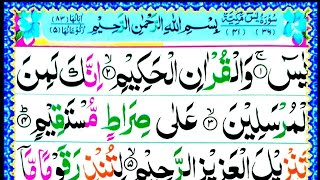 سُوْرَةُ يٰسٓ مَكِّيَّةٌ (٣٦) (٤١) بِسْمِ اللهِ الرَّحْمٰنِ الرَّحِيْمِ اٰيَاتُهَا (٨٣) رُكُوْعَاتُهَا (٥)
يٰسٓ ۚ‏﴿١﴾ وَالْقُرْاٰنِ الْحَكِيْمِ ﴿٢﴾ اِنَّكَ لَمِنَ
الْمُرْسَلِيْنَ ﴿٣﴾ عَلٰى صِرَاطٍ مُّسْتَقِيْمٍ ﴿٤﴾
تَنْزِيْلَ الْعَزِيْزِ الرَّحِيْمِ ﴿٥﴾ لِتُنْذِرَ قَوْمًا مَّاۤ